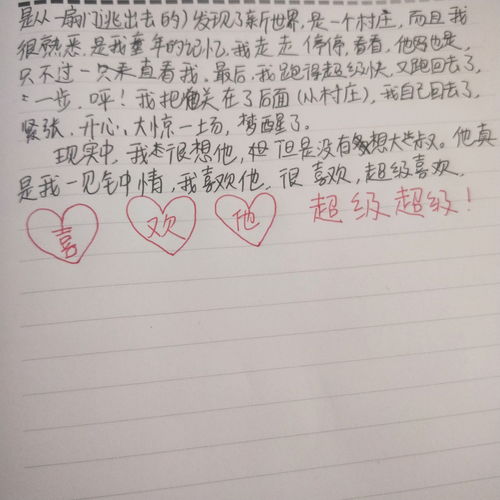 是从一扇门逃出去的)发现了新世界,是一个村庄,而且我
很熟悉,是我童年的记忆,我走走停停,看看,他也是,
只不过一只来直看我.最后,我跑得超级快,又跑回去了,
一步,呯!我把他关在了后面(从村庄),我自己回去了,
紧张、开心、大惊一场,梦醒了。
现实中,我很想他,但是没有多想大些叔。他真
是我一见钟情,我喜欢他,很喜欢,超级喜欢.
喜 欢 他 超级超级!